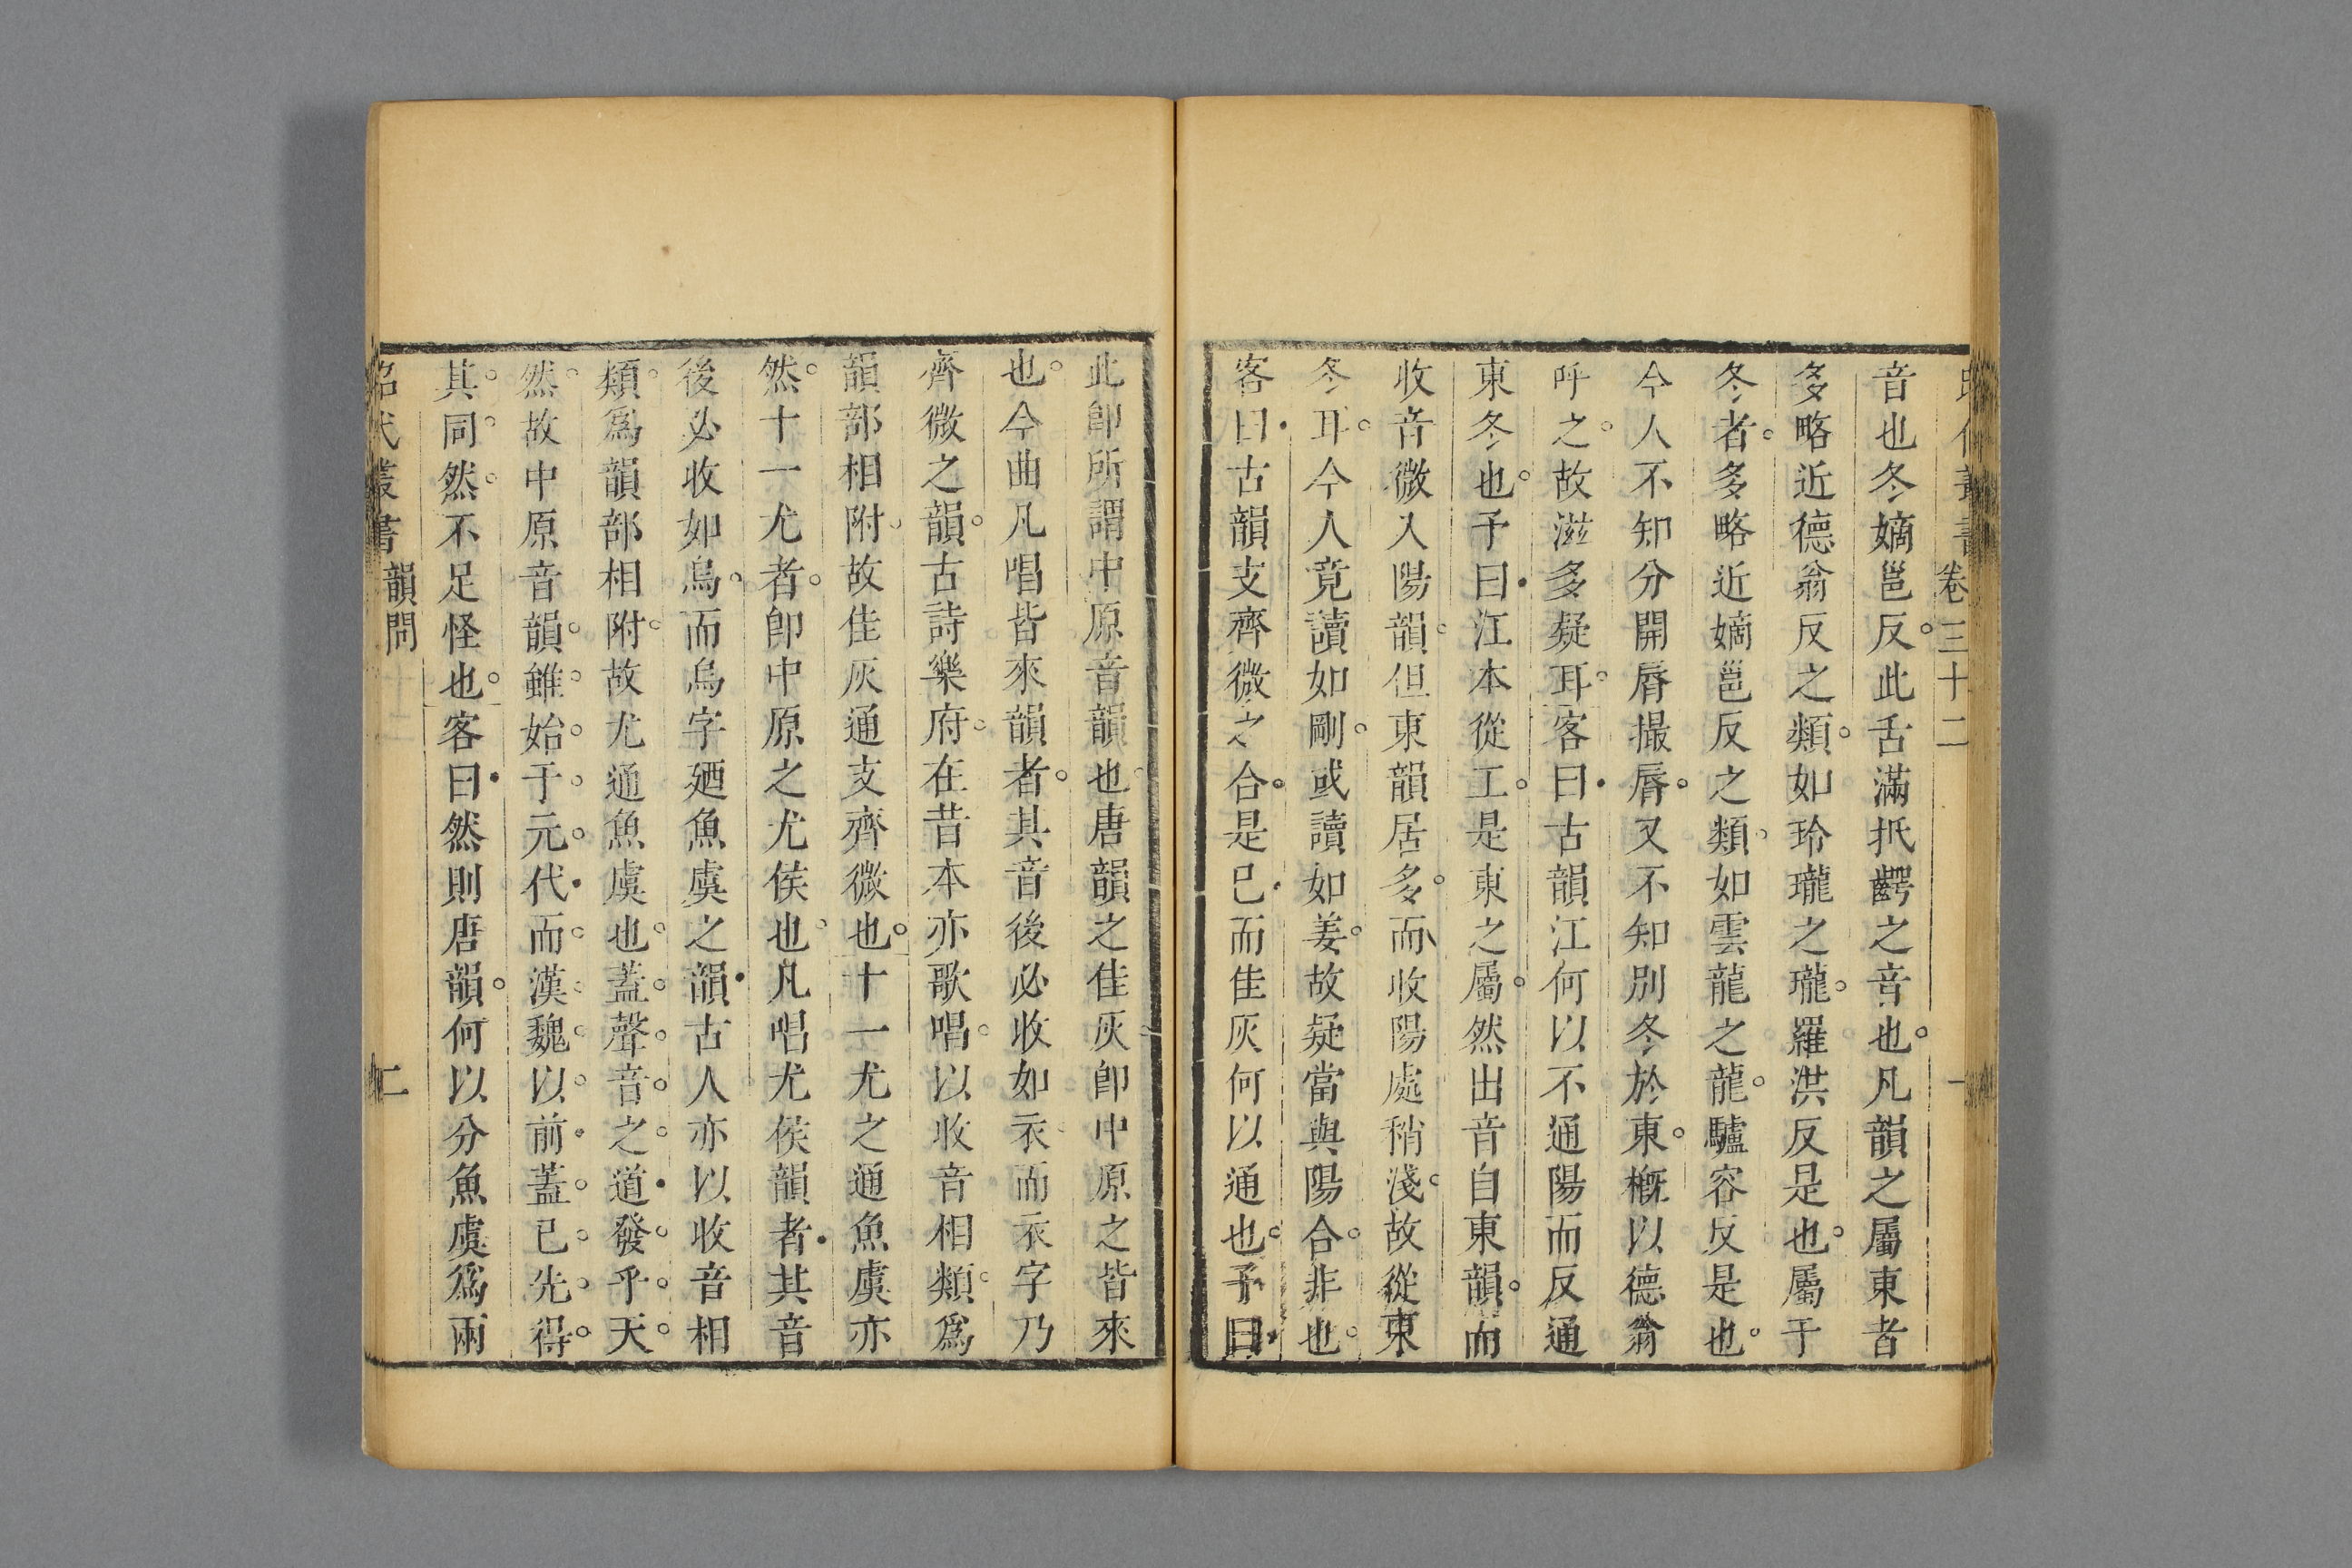 卷三十二
音也冬嫡邕反此舌滿抵齶之音也凡韻之屬東者
多略近德翁反之類如玲瓏之瓏羅洪反是也屬于
冬者多略近嫡邕反之類如雲龍之龍驢容反是也
今人不知分開脣撮脣又不知別冬於東槪以德翁
呼之故滋多疑耳客曰古韻江何以不通陽而反通
東冬也予曰江本從工是東之屬然出音自東韻而
收音微入陽韻但東韻居多而收陽處稍淺故從東
冬耳今人竟讀如剛或讀如姜故疑當與陽合非也
客曰古韻支齊微之合是已而佳灰何以通也予曰
此卽所謂中原音韻也唐韻之佳灰卽中原之皆來
也今曲凡唱皆來韻者其音後必收如衣而衣字乃
齊微之韻古詩樂府在昔本亦歌唱以收音相類爲
韻部相附故佳灰通支齊微也十一尤之通魚虞亦
然十一尤者卽中原之尤侯也凡唱尤侯韻者其音
後必收如烏而烏字廼魚虞之韻古人亦以收音相
類爲韻部相附故尤通魚虞也蓋聲音之道發乎天
然故中原音韻雖始于元代而漢魏以前蓋已先得
其同然不足怪也客曰然則唐韻何以分魚虞爲兩
代叢書 韻問 二